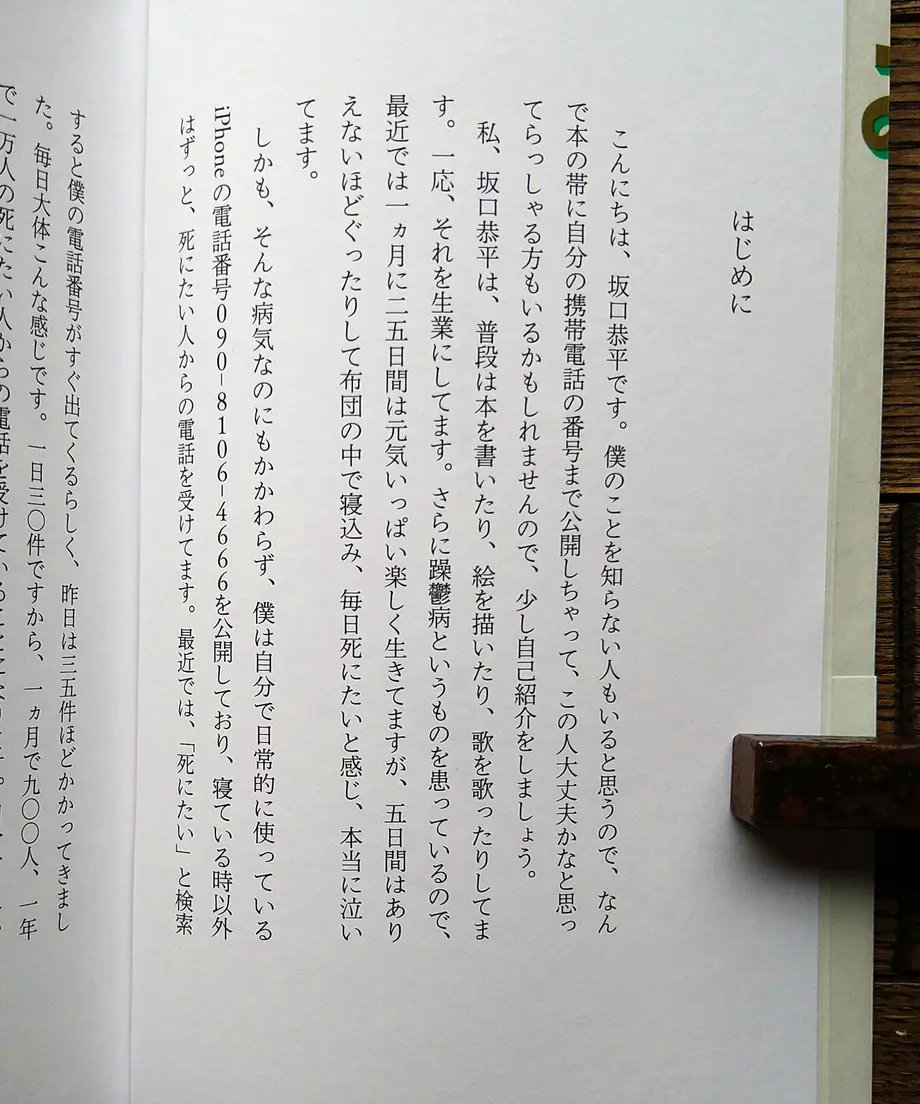 はじめに
こんにちは、坂口恭平です。僕のことを知らない人もいると思うので、なん
で本の帯に自分の携帯電話の番号まで公開しちゃって、この人大丈夫かなと思っ
てらっしゃる方もいるかもしれませんので、少し自己紹介をしましょう。
私、坂口恭平は、普段は本を書いたり、絵を描いたり、歌を歌ったりしてま
す。一応、それを生業にしてます。さらに躁鬱病というものを患っているので、
最近では一ヵ月に二五日間は元気いっぱい楽しく生きてますが、五日間はあり
えないほどぐったりして布団の中で寝込み、毎日死にたいと感じ、本当に泣い
てます。
しかも、そんな病気なのにもかかわらず、僕は自分で日常的に使っている
iPhoneの電話番号090-8106-4666を公開しており、寝ている時以外
はずっと、死にたい人からの電話を受けてます。最近では、「死にたい」と検索
すると僕の電話番号がすぐ出てくるらしく、昨日は三五件ほどかかってきまし
た。毎日大体こんな感じです。一日三〇件ですから、一ヵ月で九〇〇人、一年
で一万人の死にたい人からの電話を受けていることになります。